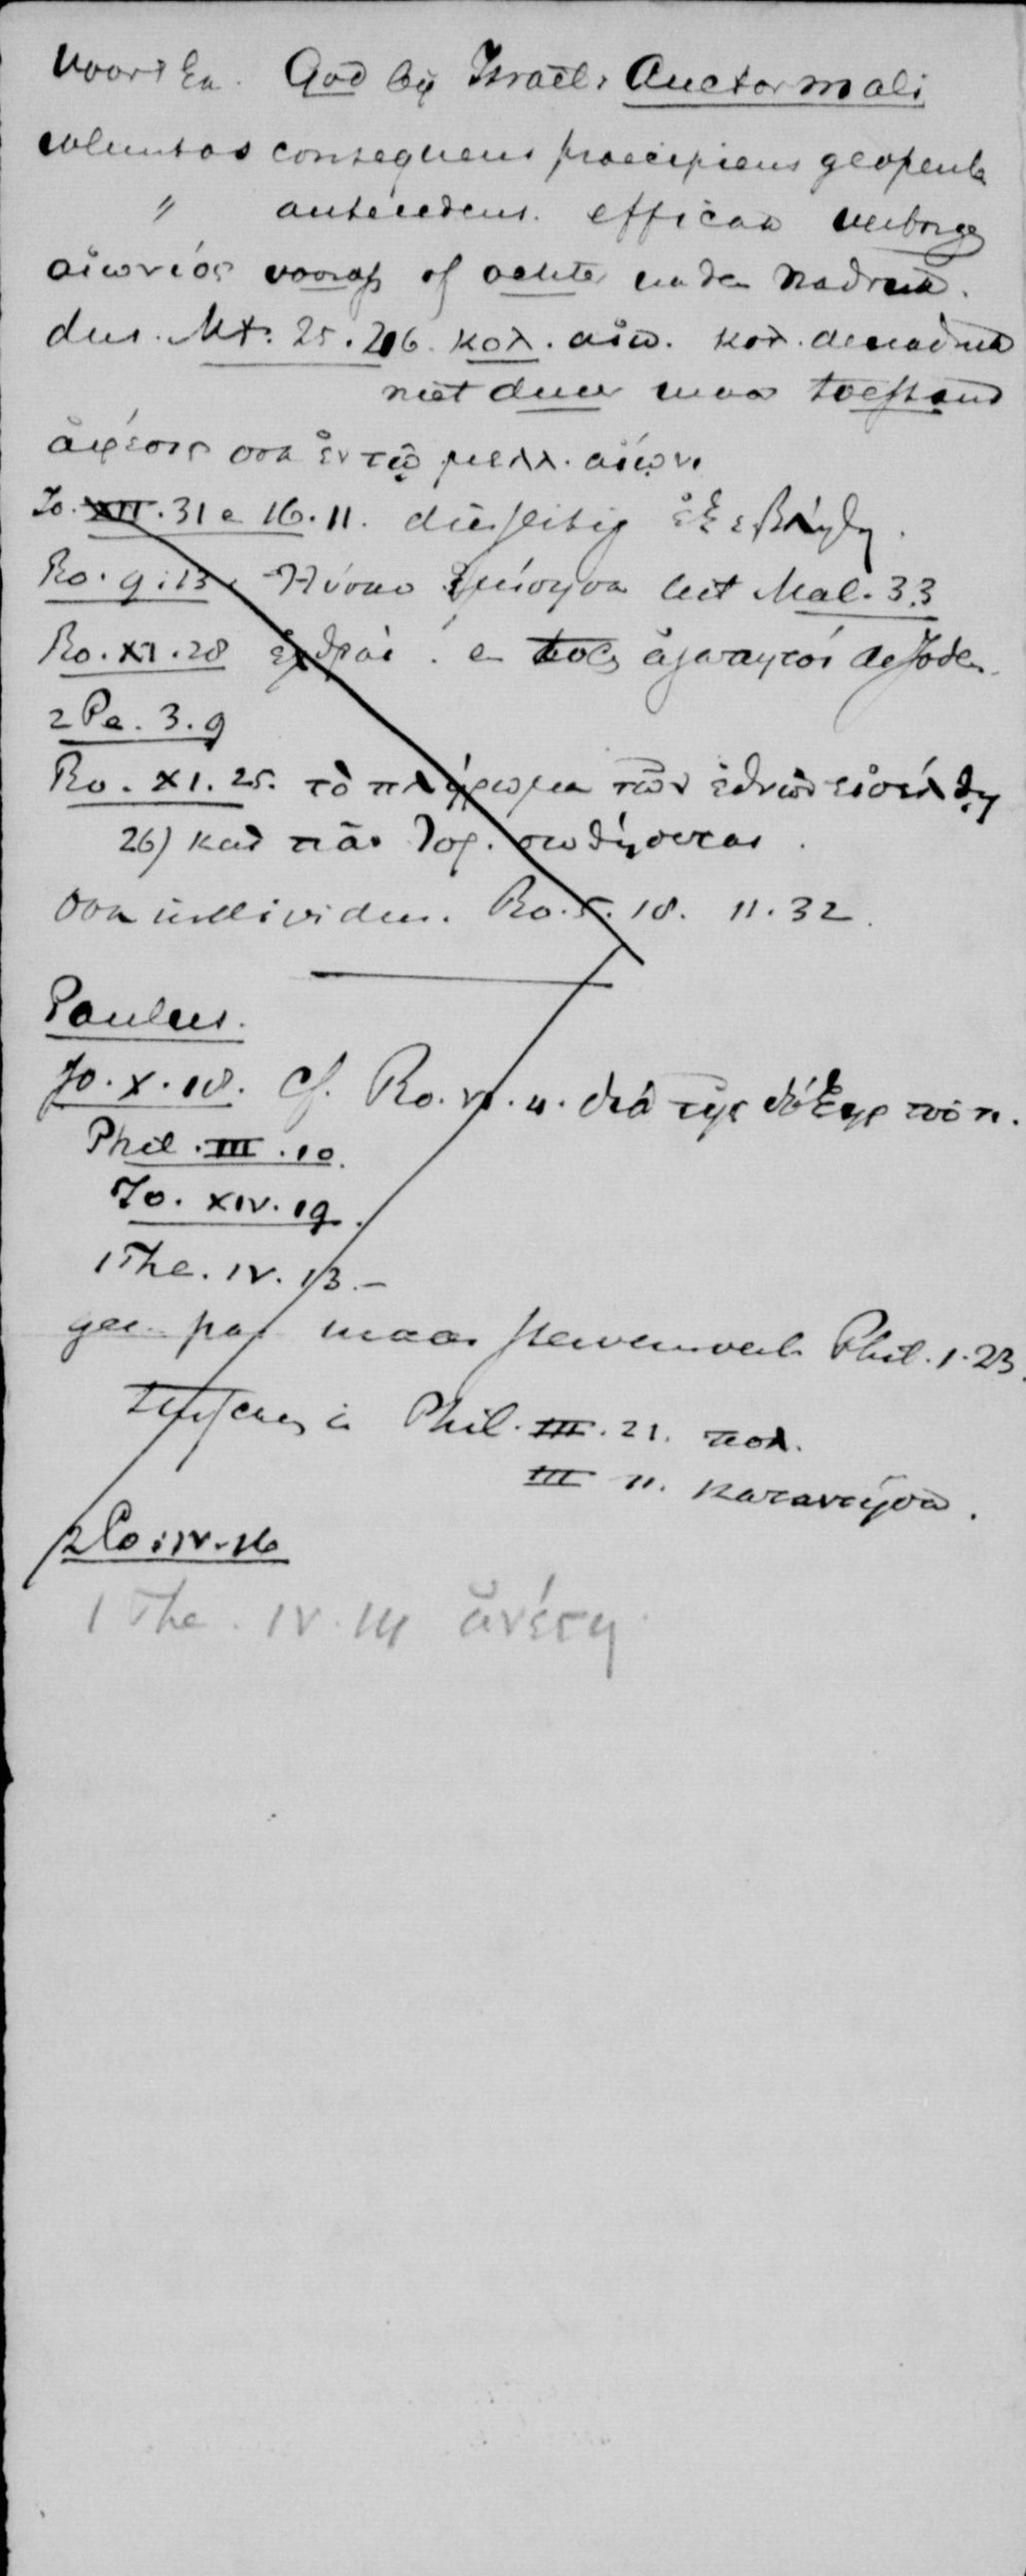 God bij Israel. Auctor mali
voluntas consequens praecipiens geopenb
" antecedens. efficax verborg
αἰωνίος voorop of achter nadruk.
dus. Mt. 25. 26. κολ. αἰω. κολ. de nadruk
niet duur maar toestand
ἄφεσις ook ἐν τῷ μελλ. αἰῶνι
Jo. XII. 31 e 16. 11. diesseitig ἐξεβλήθη.
Ro. 9. 13. Ἠσαυ ἐμίσησα uit Mal. 3.3
Ro. XI. 28 ἐχθροί. en toch ἀγαπητοί de Joden.
2 Pe. 3. 9
Ro. XI. 25. τὸ πλήρωμα τῶν ἐθνῶν εἰσέλθῃ
26) και πᾶς Ισρ. σωθήσεται.
ook individueel. Ro. 5. 18. 11. 32.
Paulus.
Jo. X. 18. Cf. Ro. VI. 4. διὰ τῆς δόξης τοῦ π.
Phil. III. 10.
Jo. XIV. 19.
1 The. IV. 13. –
geen par maar Phil. 1. 23.
Phil. III. 21. πολ.
III 11. καταντήσω.
2 Co. IV. 16
1 The. IV. 14 ἀνέστη